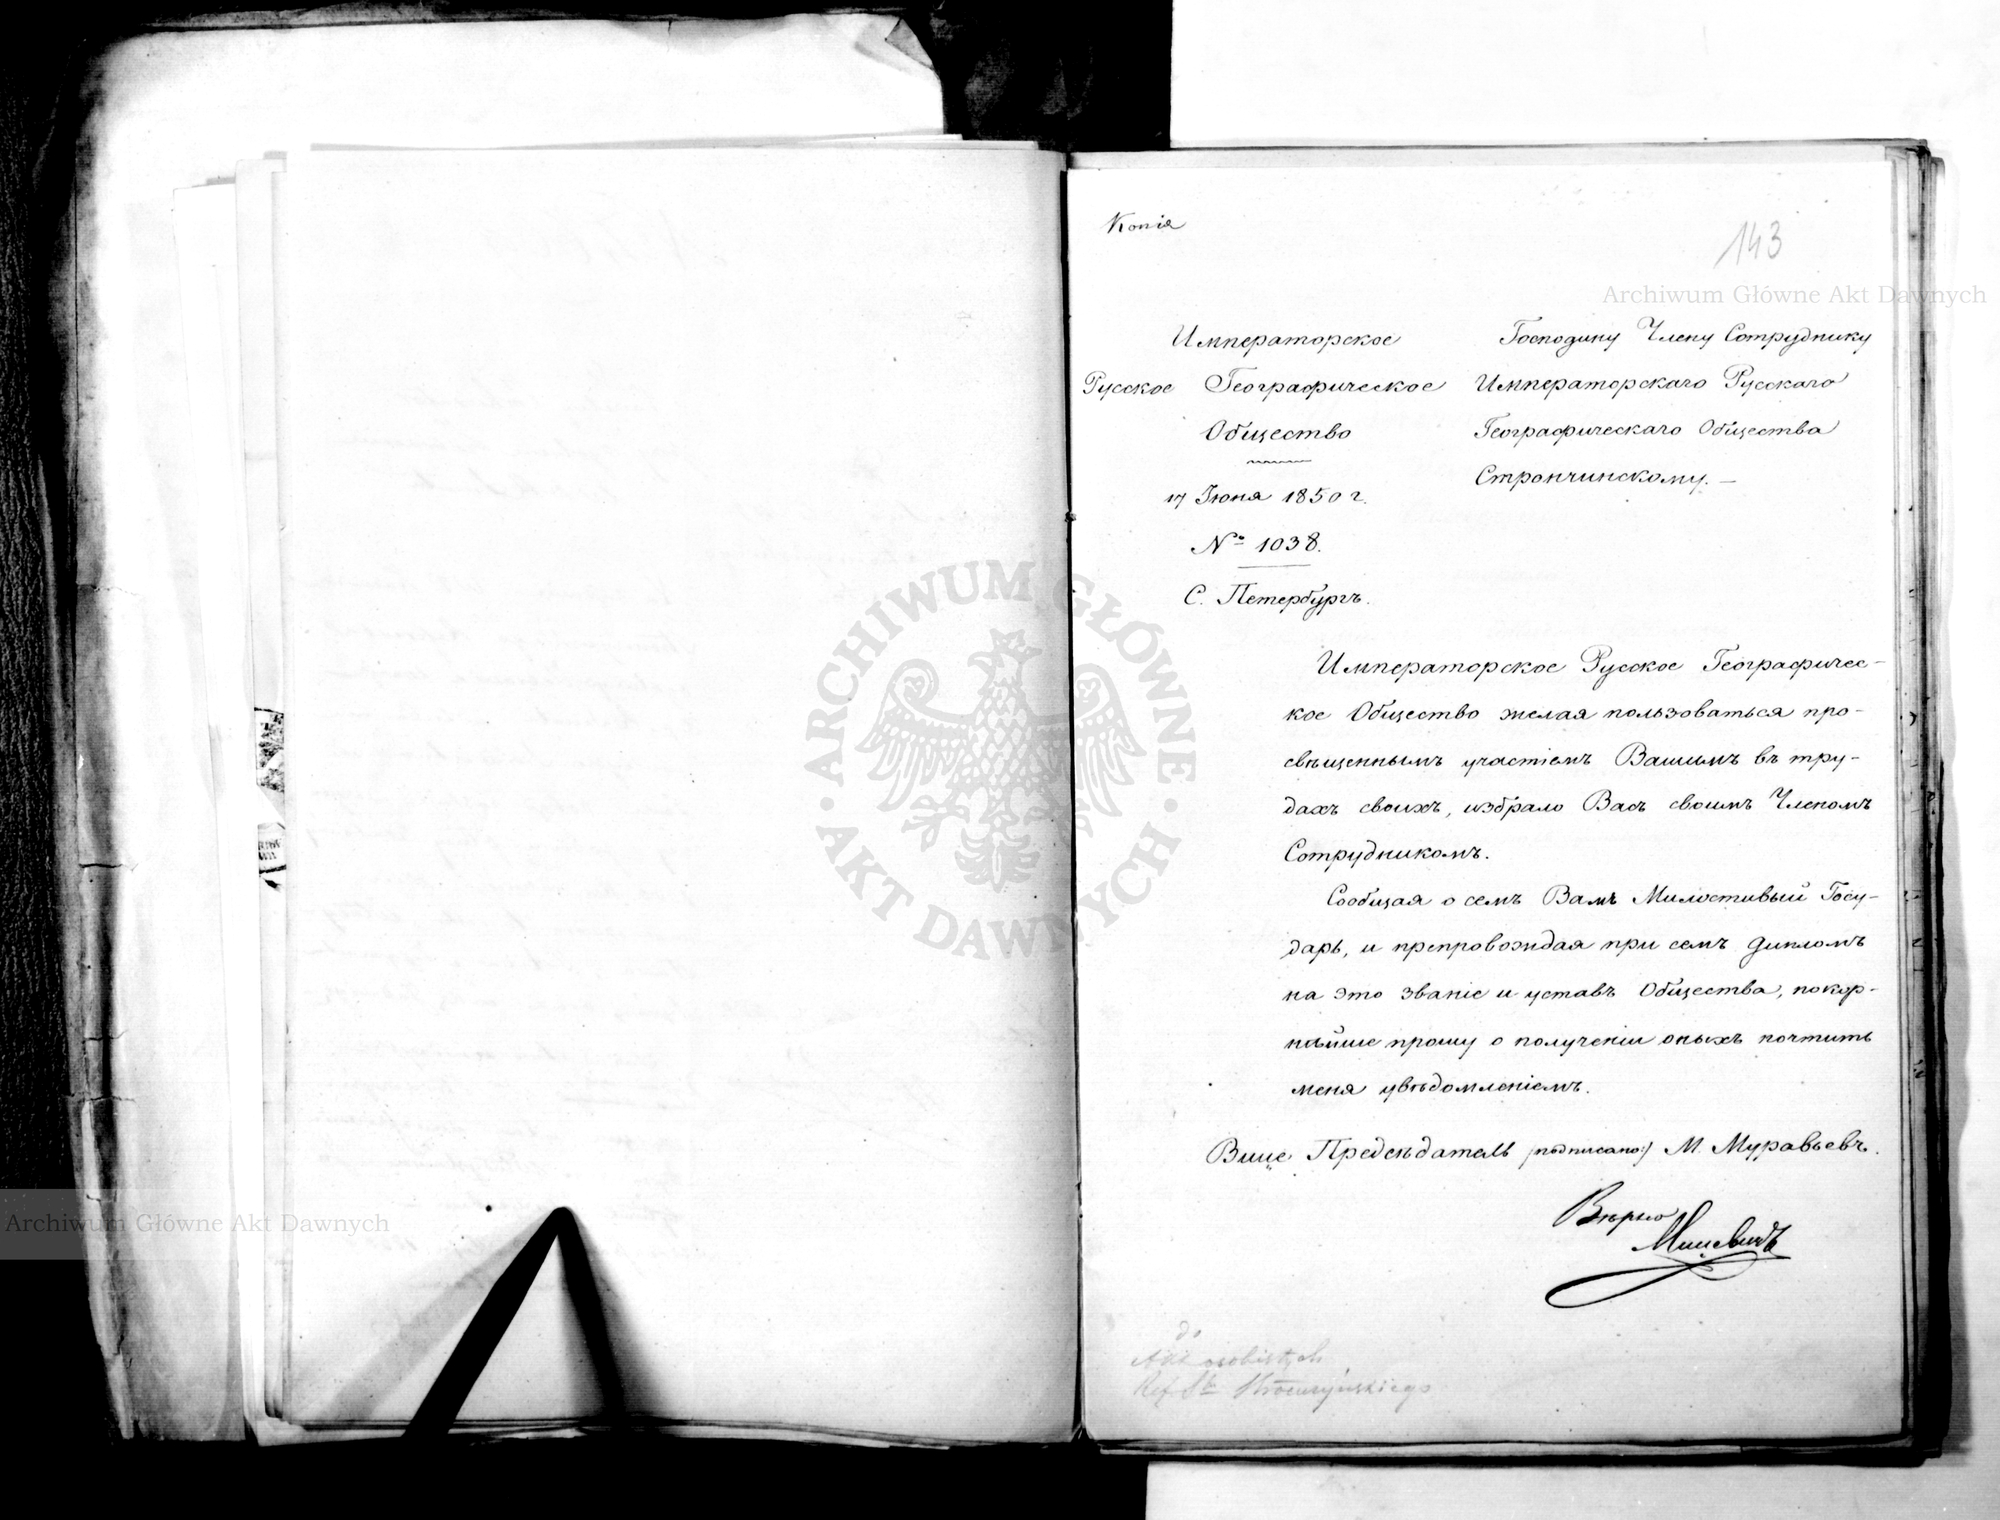 Копія
143
Императорское
Русское Географическое
Общество
17 Іюня 1850 г.
№ 1038.
С. Петербургъ.
Господину Члену Сотруднику
Императорскаго Русскаго
Географическаго Общества
Стрончинскому. —
Императорское Русское Географичес-
кое Общество желая пользоваться про-
свѣщеннымъ участіемъ Вашимъ въ тру-
дахъ своихъ, избрало Васъ своимъ Членомъ
Сотрудникомъ.
Сообщая о семъ Вамъ Милостивый Госу-
дарь, и препровождая при семъ дипломъ
на это званіе и уставъ Общества, покор-
нѣйше прошу о полученіи оныхъ почтить
меня увѣдомленіемъ.
Вице Предсѣдатель /подписано:/ М. Муравьевъ.
Вѣрно
do
Akt osobistych
Ref. St. Strończyńskiego
Archiwum Główne Akt Dawnych
Archiwum Główne Akt Dawnych
ARCHIWUM GŁÓWNE AKT DAWNYCH